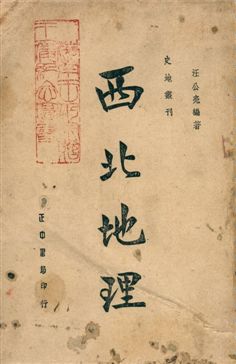 汪公亮編著
史地叢刊
西北地理
正中書局印行